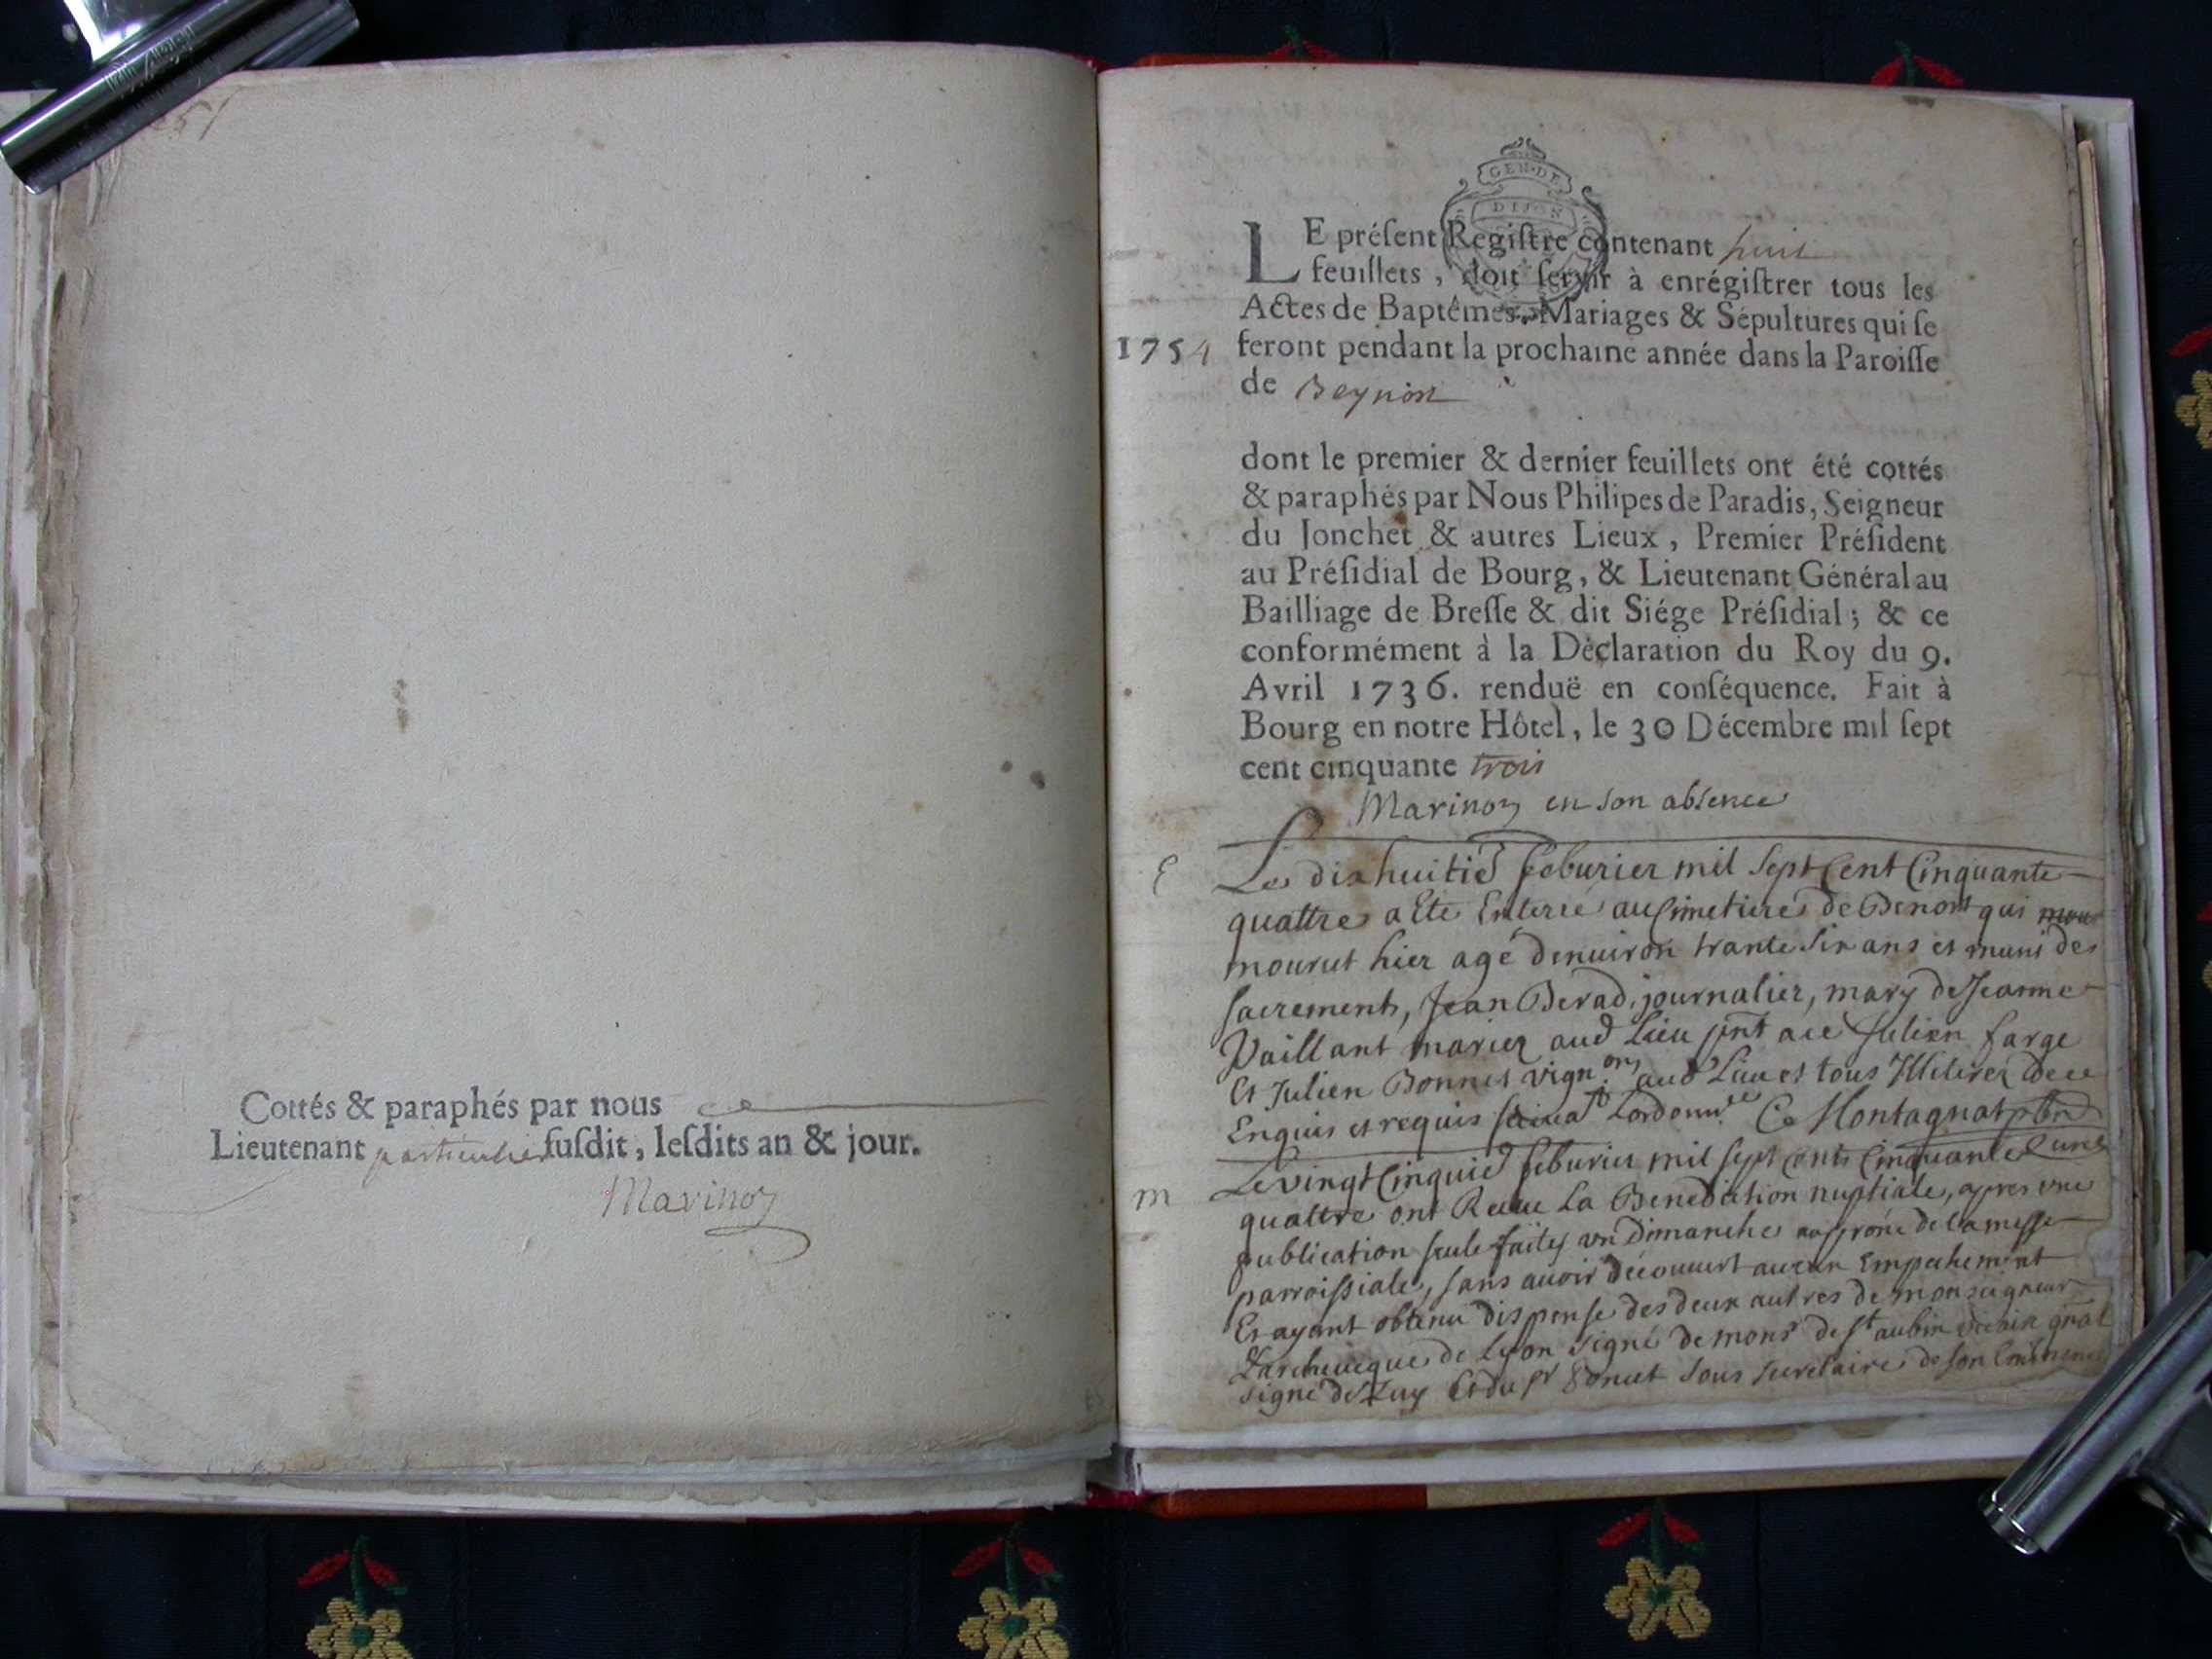 51
Cottés & paraphés par nous
Lieutenant particulier susdit, lesdits an & jour.
Marinoz
GEN·DE
DIJON
LE présent Registre contenant huit
feuillets, doit servir à enrégistrer tous les
Actes de Baptêmes, Mariages & Sépultures qui se
1754 feront pendant la prochaine année dans la Paroisse
de Beynon
dont le premier & dernier feuillets ont été cottés
& paraphés par Nous Philipes de Paradis, Seigneur
du Jonchet & autres Lieux, Premier Président
au Présidial de Bourg, & Lieutenant Général au
Bailliage de Bresse & dit Siége Présidial; & ce
conformément à la Déclaration du Roy du 9.
Avril 1736. renduë en conséquence. Fait à
Bourg en notre Hôtel, le 30 Décembre mil sept
cent cinquante trois
Marinoz en son absence
E Le dixhuitie feburier mil sept cent Cinquante
quattre a Ete Enterré au Cimetiere de Benont qui mou
mourut hier agé denuiron trante six ans et muni des
sacrements, Jean Berad, journalier, mary de Jeanne
Vaillant mariez aud Lieu pnt ace Julien farge
Et Julien Bonnet vignons aud Lieu et tous Illeterez de ce
Enquis et requis lordonnce Ce Montagnat pbre
Curé
m Le vingt Cinquie feburier mil sept cents Cinquante
quattre ont Receu La Benediction nuptiale, apres vne
publication seule faites vn Dimanche au prone de la messe
parroissiale, sans auoir decouuert aucun Empechement
Et ayant obtenu dispense des deux autres de monseigneur
Larcheueque de Lyon signé de monsr de st aubin vicair gnal
signé de Luy Et du sr Bonnet sous secretaire de son Eminence